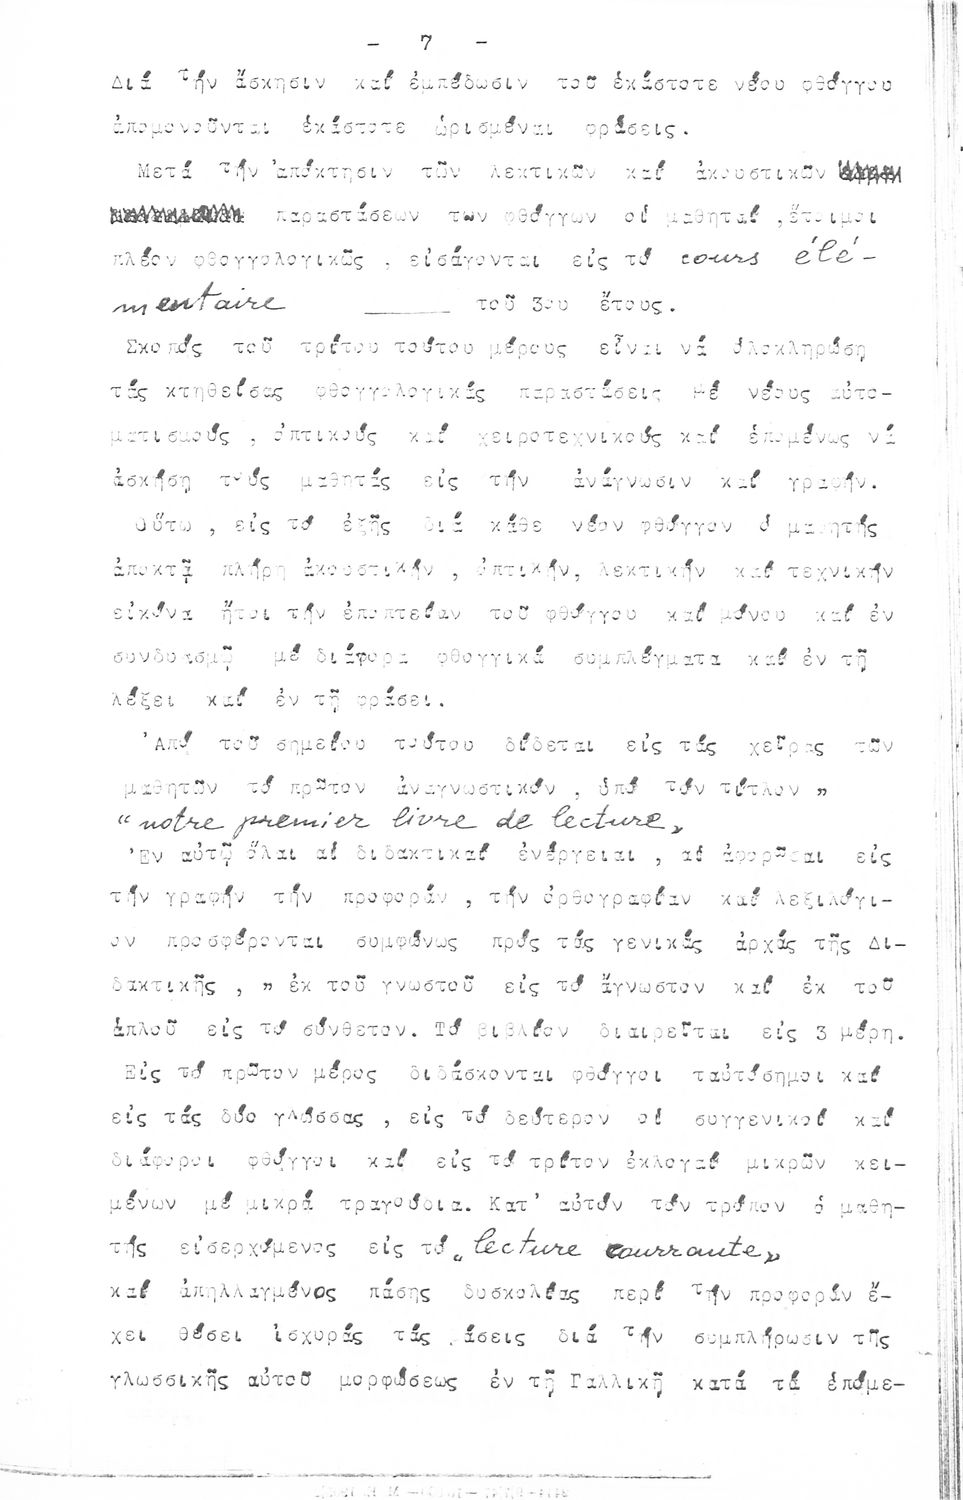 - 7 -
Διά τήν ἄσκησιν καί ἐμπέδωσιν τοῦ ἑκάστοτε νέου φθόγγου
ἀπομονοῦνται ἑκάστοτε ὡρισμέναι φράσεις.
Μετά τήν ἀπόκτησιν τῶν λεκτικῶν καί ἀκουστικῶν
παραστάσεων των φθόγγων οἱ μαθηταί ,ἕτοιμοι
πλέον φθογγολογικῶς , εἰσάγονται εἰς τό cours élé-
mentaire ______ τοῦ 3ου ἔτους.
Σκοπός τοῦ τρίτου τούτου μέρους εἶναι νά ὁλοκληρώση
τάς κτηθείσας φθογγολογικάς παραστάσεις μέ νέους αὐτο-
ματισμούς , ὀπτικούς καί χειροτεχνικούς καί ἑπομένως νά
ἀσκήση τούς μαθητάς εἰς τήν ἀνάγνωσιν καί γραφήν.
Οὕτω , εἰς τό ἑξῆς διά κάθε νέον φθόγγον ὁ μαθητής
ἀποκτᾷ πλήρη ἀκουστικήν , ὀπτικήν, λεκτικήν καί τεχνικήν
εἰκόνα ἤτοι τήν ἐποπτείαν τοῦ φθόγγου καί μόνου καί ἐν
συνδυασμῷ μέ διάφορα φθογγικά συμπλέγματα καί ἐν τῇ
λέξει καί ἐν τῇ φράσει.
Ἀπό τοῦ σημείου τούτου δίδεται εἰς τάς χεῖρας τῶν
μαθητῶν τό πρῶτον ἀναγνωστικόν , ὑπό τόν τίτλον "
"notre premier livre de lecture"
Ἐν αὐτῷ ὅλαι αἱ διδακτικαί ἐνέργειαι , αἱ ἀφορῶσαι εἰς
τήν γραφήν τήν προφοράν , τήν ὀρθογραφίαν καί λεξιλόγι-
ον προσφέρονται συμφώνως πρός τάς γενικάς ἀρχάς τῆς Δι-
δακτικῆς , " ἐκ τοῦ γνωστοῦ εἰς τό ἄγνωστον καί ἐκ τοῦ
ἁπλοῦ εἰς τό σύνθετον. Τό βιβλίον διαιρεῖται εἰς 3 μέρη.
Εἰς τό πρῶτον μέρος διδάσκονται φθόγγοι ταὐτόσημοι καί
εἰς τάς δύο γλώσσας , εἰς τό δεύτερον οἱ συγγενικοί καί
διάφοροι φθόγγοι καί εἰς τό τρίτον ἐκλογαί μικρῶν κει-
μένων μέ μικρά τραγούδια. Κατ' αὐτόν τόν τρόπον ὁ μαθη-
τής εἰσερχόμενος εἰς τό „lecture courrante"
καί ἀπηλλαγμένος πάσης δυσκολίας περί τήν προφοράν ἔ-
χει θέσει ἰσχυράς τάς άσεις διά τήν συμπλήρωσιν τῆς
γλωσσικῆς αὐτοῦ μορφώσεως ἐν τῇ Γαλλικῇ κατά τά ἑπόμε-